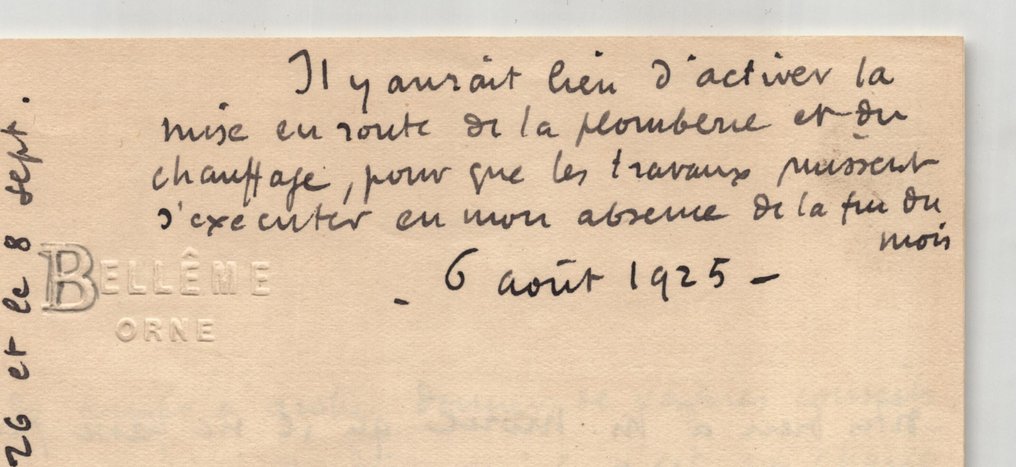 Il y aurait lieu d'activer la
mise en route de la plomberie et du
chauffage, pour que les travaux puissent
s'exécuter en mon absence de la fin du
mois
- 6 août 1925 -
BELLÊME
ORNE
26 et le 8 sept.